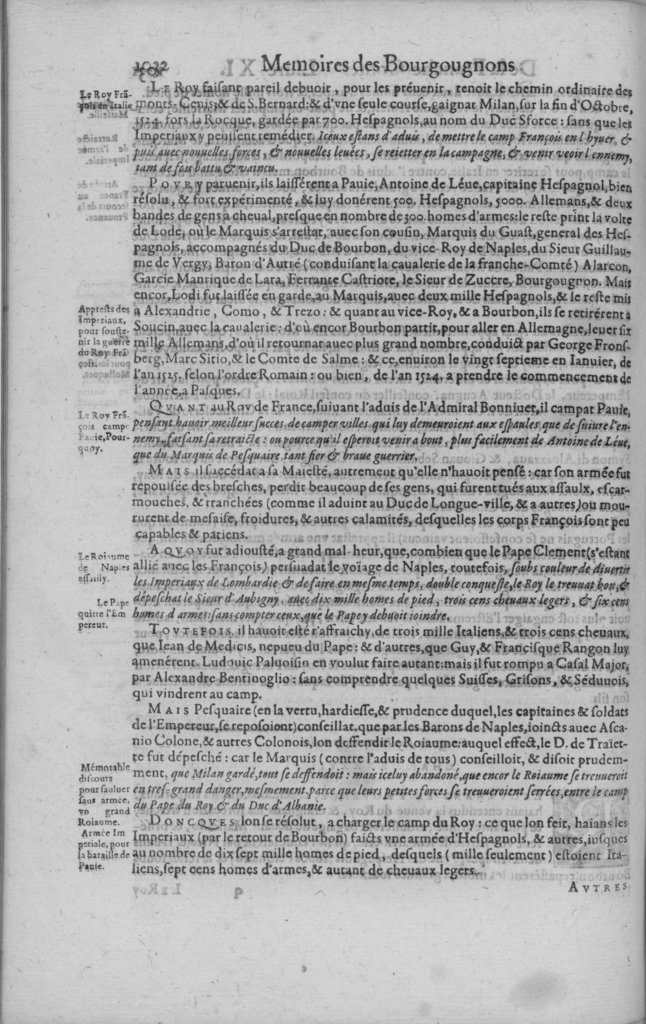 1032 Memoires des Bourgougnons
Le Roy Frã-
çois en Italie
LE Roy faisant pareil debuoir, pour les préuenir, tenoit le chemin ordinaire des
monts-Cenis, & de S. Bernard: & d'vne seule course, gaignat Milan, sur la fin d'Octobre,
1524. fors la Rocque, gardée par 700. Hespagnols, au nom du Duc Sforce: sans que les
Imperiaux y peussent remédier. Iceux estans d'aduis, de mettre le camp François en l'hyuer, &
puis auec nouuelles forces, & nouuelles leuées, se reietter en la campagne, & venir veoir l'ennemy,
tant de fois battu & vaincu.
POVR y paruenir, ils laissérent a Pauie, Antoine de Léue, capitaine Hespagnol, bien
résolu, & fort expérimenté, & luy donérent 500. Hespagnols, 5000. Allemans, & deux
bandes de gens a cheual, presque en nombre de 300. homes d'armes: le reste print la volte
de Lode, où le Marquis s'arrestat, auec son cousin, Marquis du Guast, general des Hes-
pagnols, accompagnés du Duc de Bourbon, du vice-Roy de Naples, du Sieur Guillau-
me de Vergy, Baron d'Autré (conduisant la caualerie de la franche-Comté) Alarcon,
Garcie Manrique de Lara, Ferrante Castriote, le Sieur de Zuccre, Bourgougnon. Mais
encor, Lodi fut laissée en garde, au Marquis, auec deux mille Hespagnols, & le reste mis
a Alexandrie, Como, & Trezo: & quant au vice-Roy, & a Bourbon, ils se retirérent a
Soucin, auec la caualerie: d'où encor Bourbon partit, pour aller en Allemagne, leuer six
mille Allemans, d'où il retournat auec plus grand nombre, conduict par George Frons-
berg, Marc Sitio, & le Comte de Salme: & ce, enuiron le vingt septieme en Ianuier, de
l'an 1525. selon l'ordre Romain: ou bien, de l'an 1524. a prendre le commencement de
l'année, a Pasques.
Apprests des
Imperiaux,
pour souste-
nir la guerre
du Roy Frã-
çois.
QVANT au Roy de France, suiuant l'aduis de l'Admiral Bonniuet, il campat Pauie,
pensant hauoir meilleur succes de camper villes qui luy demeuroient aux espaules que de suiure l'en-
nemy, faisant sa retraicte: ou pource qu'il esperoit venir a bout, plus facilement de Antoine de Léue,
que du Marquis de Pesquaire, tant fier & braue guerrier.
Le Roy Frã-
çois camp
Pauie, Pour-
quoy.
MAIS il succédat a sa Maiesté, autrement qu'elle n'hauoit pensé: car son armée fut
repoulsée des bresches, perdit beaucoup de ses gens, qui furent tués aux assaulx, escar-
mouches, & tranchées (comme il aduint au Duc de Longue-ville, & a autres) ou mou-
rurent de mesaise, froidures, & autres calamités, desquelles les corps François sont peu
capables & patiens.
A QVOY fut adiousté, a grand mal-heur, que, combien que le Pape Clement (s'estant
allié auec les François) persuadat le voïage de Naples, toutefois, soubs couleur de diuertir
les Imperiaux de Lombardie & de faire en mesme temps, double conqueste, le Roy le treuuat bon, &
dépeschat le Sieur d'Aubigny, auec dix mille homes de pied, trois cens cheuaux legers, & six cen
homes d'armes: sans compter ceux, que le Pape y debuoit ioindre.
Le Roiaume
de Naples
assailly.
Le Pape
quitte l'Em
pereur.
TOVTEFOIS, il hauoit esté r'affraichy, de trois mille Italiens, & trois cens cheuaux,
que Iean de Medicis, nepueu du Pape: & d'autres, que Guy, & Francisque Rangon luy
amenérent. Ludouic Paluoisin en voulut faire autant: mais il fut rompu a Casal Major,
par Alexandre Bentinoglio: sans comprendre quelques Suisses, Grisons, & Séduuois,
qui vindrent au camp.
MAIS Pesquaire (en la vertu, hardiesse, & prudence duquel, les capitaines & soldats
de l'Empereur, se reposoient) conseillat. que par les Barons de Naples, ioincts auec Asca-
nio Colone, & autres Colonois, lon deffendit le Roiaume: auquel effect, le D. de Traïet-
te fut dépesché: car le Marquis (contre l'aduis de tous) conseilloit, & disoit prudem-
ment, que Milan gardé, tout se deffendoit: mais iceluy abandoné, que encor le Roiaume se treuueroit
en tres-grand danger, mesmement, parce que leurs petites forces se treuueroient serrées, entre le camp
du Pape du Roy & du Duc d'Albanie.
Mémorable
discours
pour sauluer
sans armée,
vn grand
Roiaume.
DONCQVES, lon se résolut, a charger le camp du Roy: ce que lon feit, haians les
Imperiaux (par le retour de Bourbon) faicts vne armée d'Hespagnols, & autres, iusques
au nombre de dix sept mille homes de pied, desquels (mille seulement) estoient Ita-
liens, sept cens homes d'armes, & autant de cheuaux legers.
Armée Im
periale, pour
la bataille de
Pauie.
AVTRES